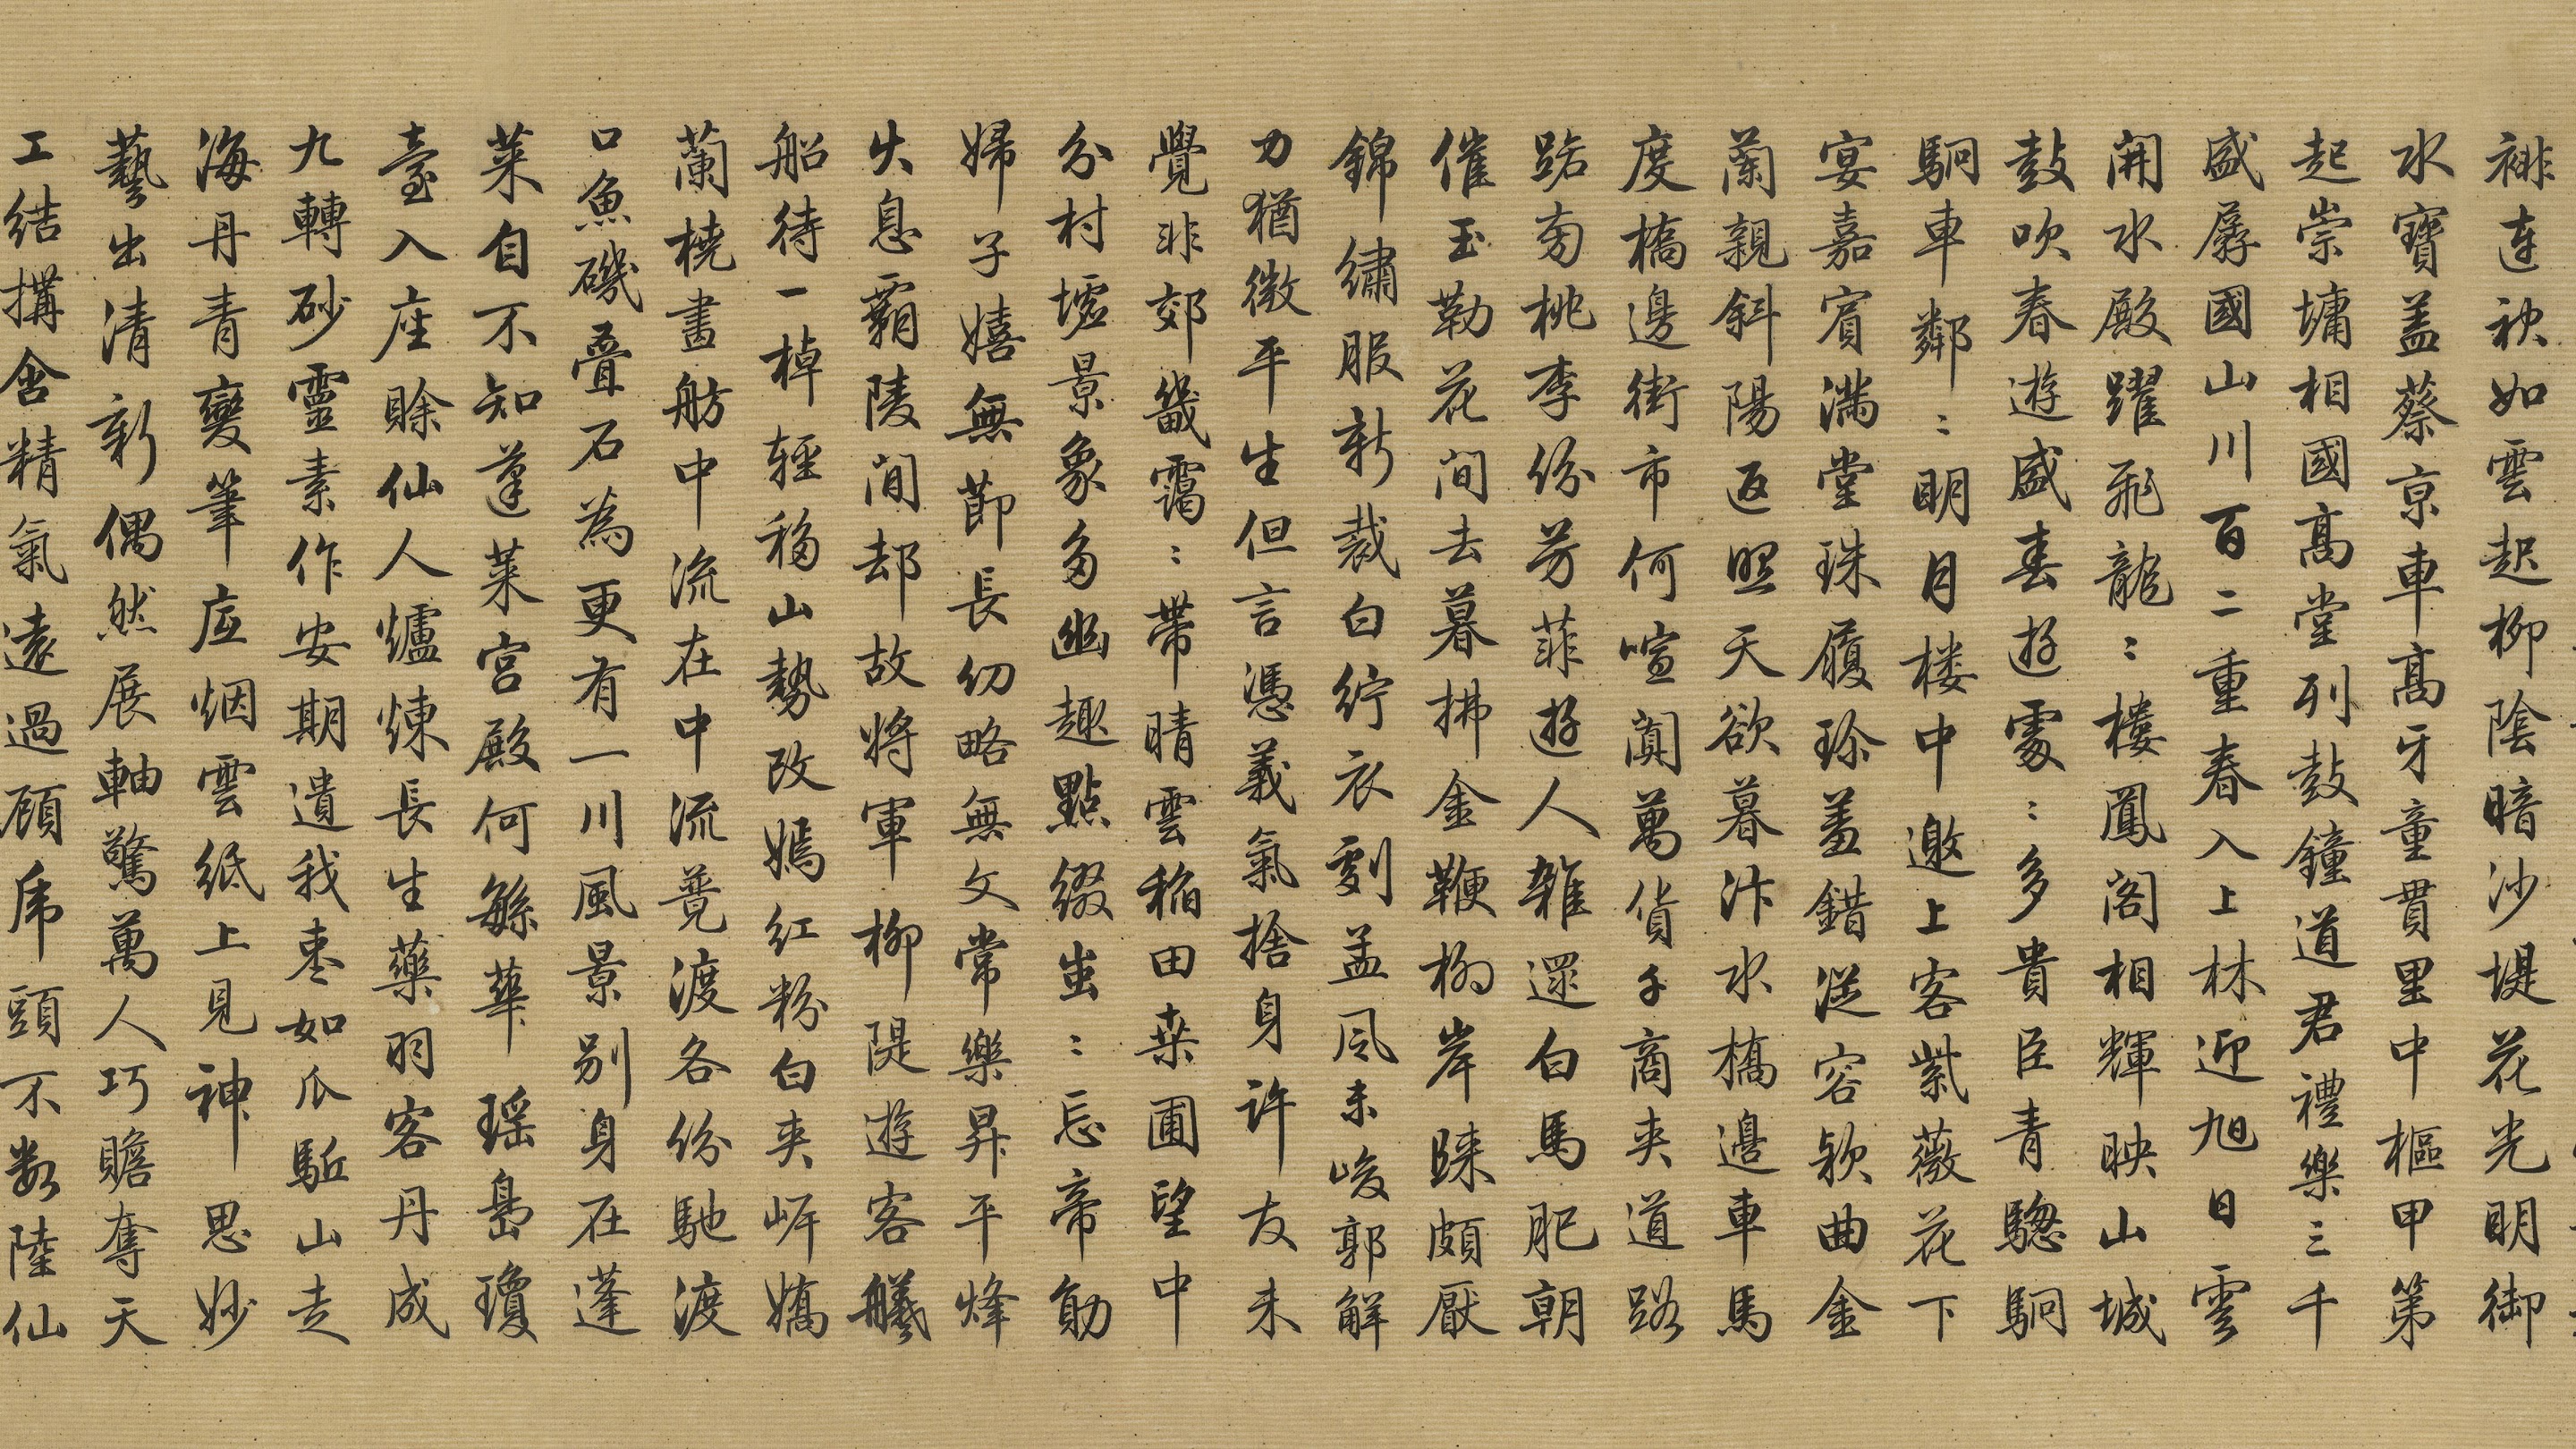 裶連袂如雲起柳陰暗沙堤花光明御
水寶盖蔡京車髙牙童貫里中樞甲第
起崇墉相國髙堂列鼓鐘道君禮樂三千
盛孱國山川百二重春入上林迎旭日雲
開水殿躍飛龍〻樓鳳閣相輝映山城
鼓吹春遊盛春遊處〻多貴臣青驄駉
駉車鄰〻明月楼中邀上客紫薇花下
宴嘉賓滿堂珠履珍羞錯從容欵曲金
蘭親斜陽返照天欲暮汴水橋邊車馬
度橋邊街市何喧闐萬貨千商夾道路
路旁桃李份芳菲遊人雜還白馬肥朝
催玉勒花间去暮拂金鞭柳岸歸頗厭
錦繡服新裁白紵衣劇孟風未峻郭解
力猶微平生但言憑義氣捨身許友未
覺非郊畿靄〻帶晴雲稲田桒圃望中
分村墟景象多幽趣點缀蚩〻忘帝勛
婦子嬉無節長幼略無文常樂昇平烽
火息霸陵间却故將軍柳隄遊客艤
船待一棹轻移山勢改嫣红粉白夾岍嬌
蘭橈畫舫中流在中流競渡各份馳渡
口魚磯叠石為更有一川風景别身在蓬
莱自不知蓬莱宫殿何緐華瑶島瓊
臺入座賒仙人爐煉長生藥羽客丹成
九轉砂靈素作安期遺我枣如瓜駈山走
海丹青變筆底烟雲紙上見神思妙
藝出清新偶然展軸驚萬人巧贍奪天
工结搆含精氣遠過顾虎頭不数陸仙